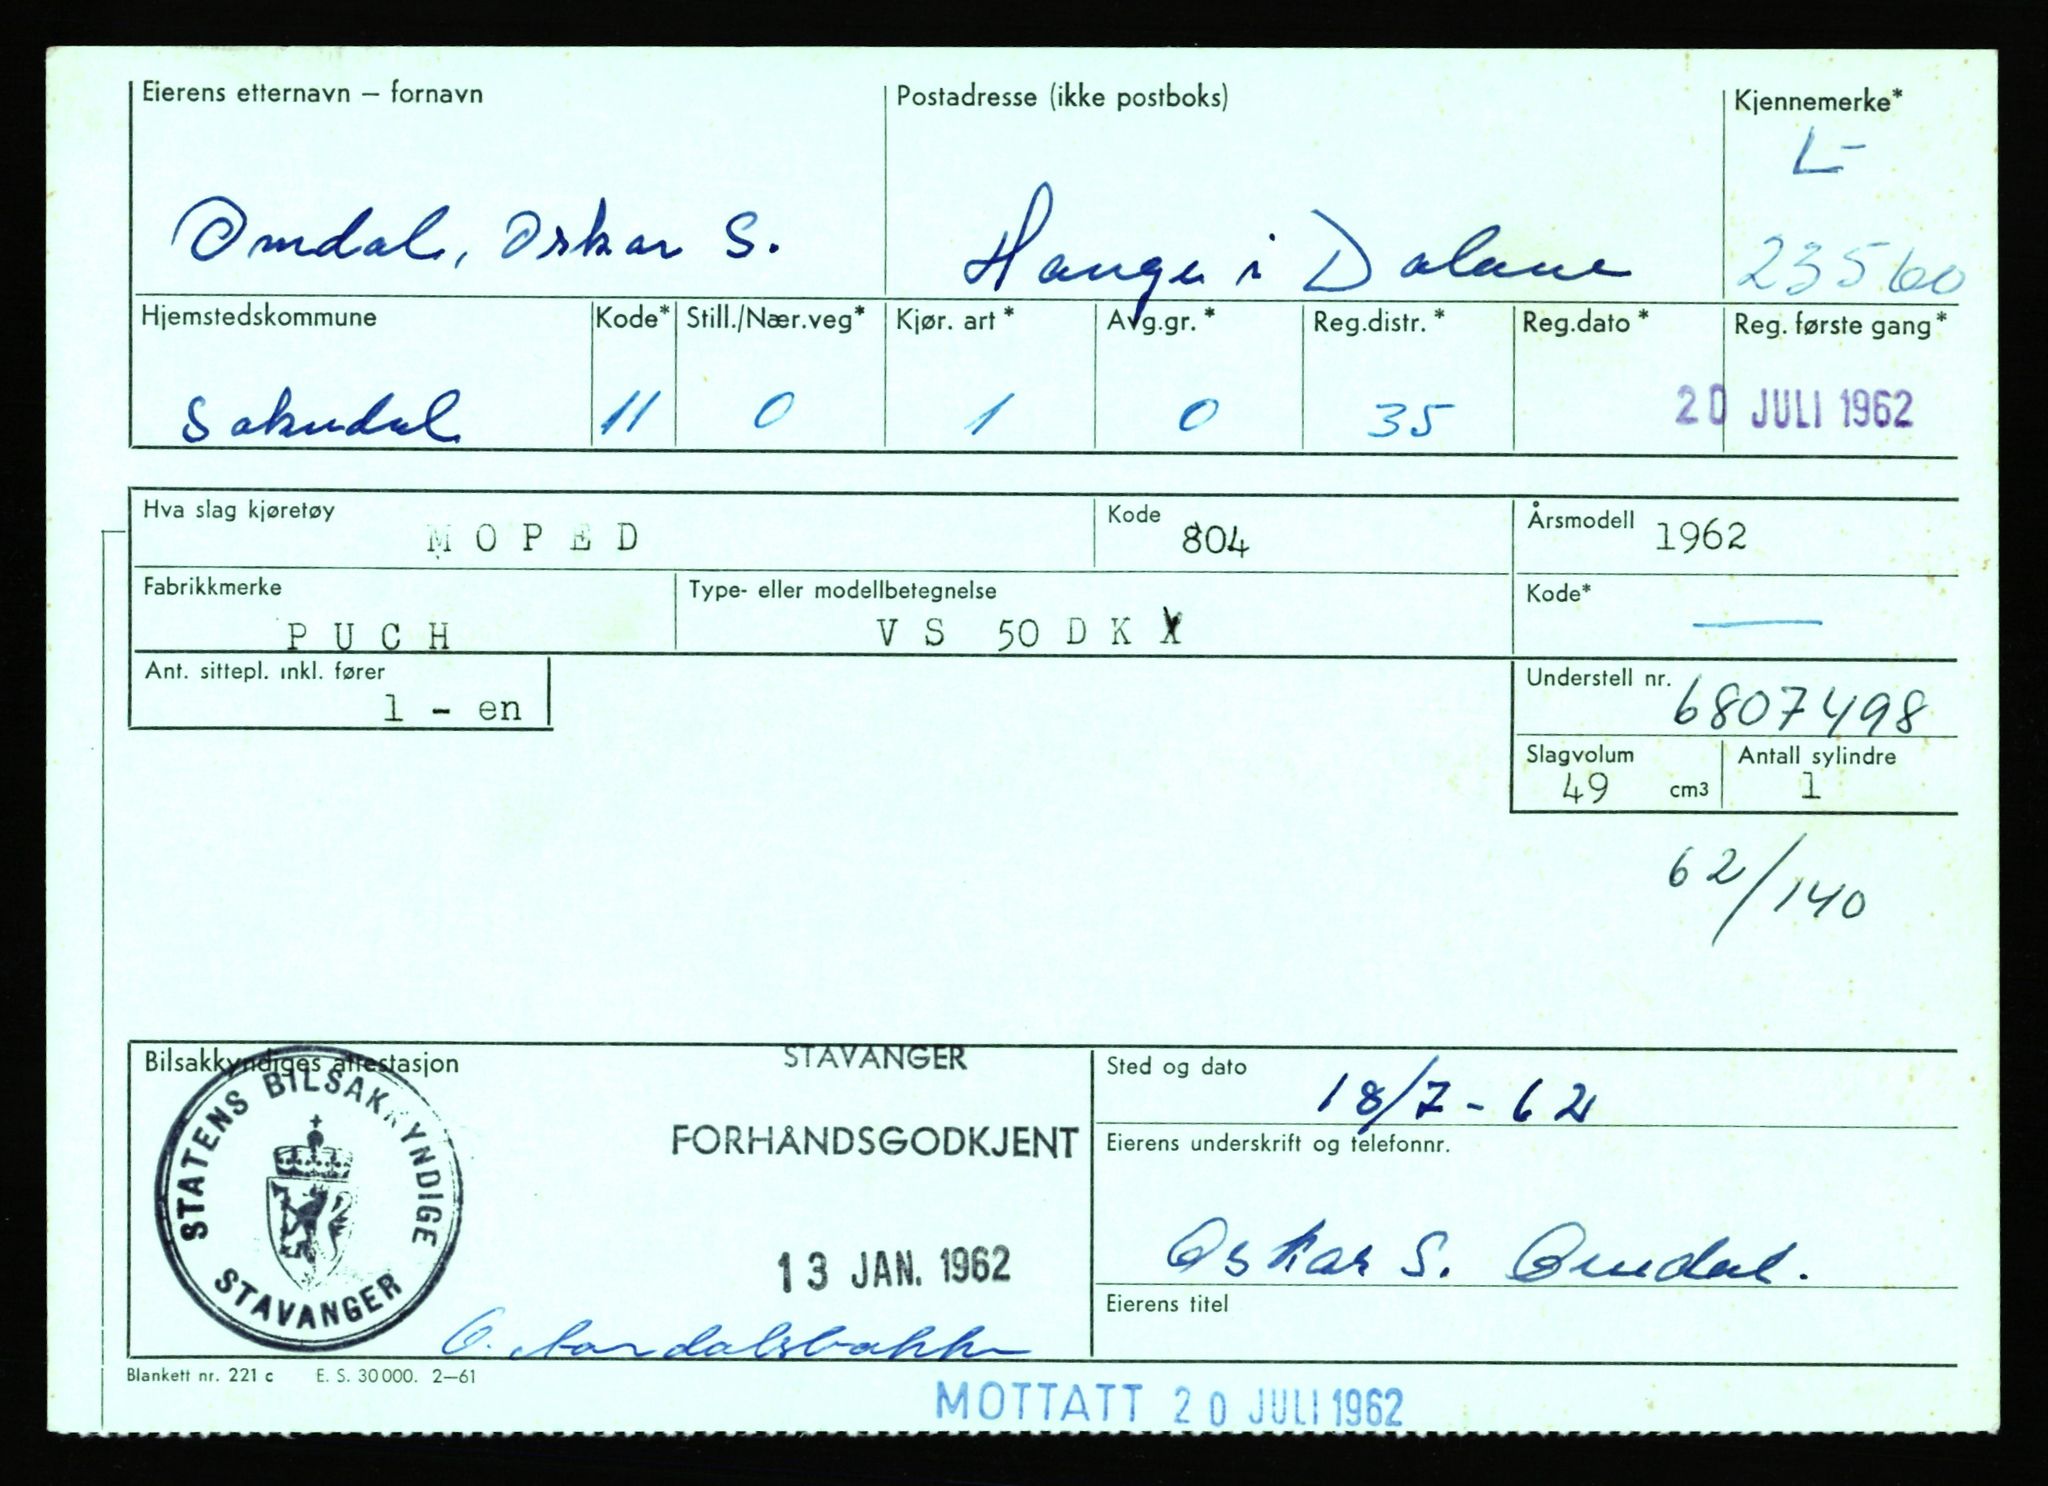 Eierens etternavn – fornavn
Postadresse (ikke postboks)
Kjennemerke*
L-
Omdal, Oskar S.
Hauge i Dalane
23560
Hjemstedskommune
Kode*
Still./Nær.veg*
Kjør. art*
Avg.gr.*
Reg.distr.*
Reg.dato*
Reg. første gang*
Sokndal
11
0
1
0
35
20 JULI 1962
Hva slag kjøretøy
MOPED
Kode
804
Årsmodell
1962
Fabrikkmerke
PUCH
Type- eller modellbetegnelse
VS 50 DK
Kode*
—
Ant. sittepl. inkl. fører
1 - en
Understell nr.
6807498
Slagvolum
49 cm3
Antall sylindre
1
62/140
Bilsakkyndiges attestasjon
STATENS BILSAKKYNDIGE
STAVANGER
STAVANGER
FORHÅNDSGODKJENT
13 JAN. 1962
Sted og dato
18/7-62
Eierens underskrift og telefonnr.
Oskar S. Omdal.
Eierens titel
Blankett nr. 221 c E. S. 30000. 2–61
MOTTATT 20 JULI 1962